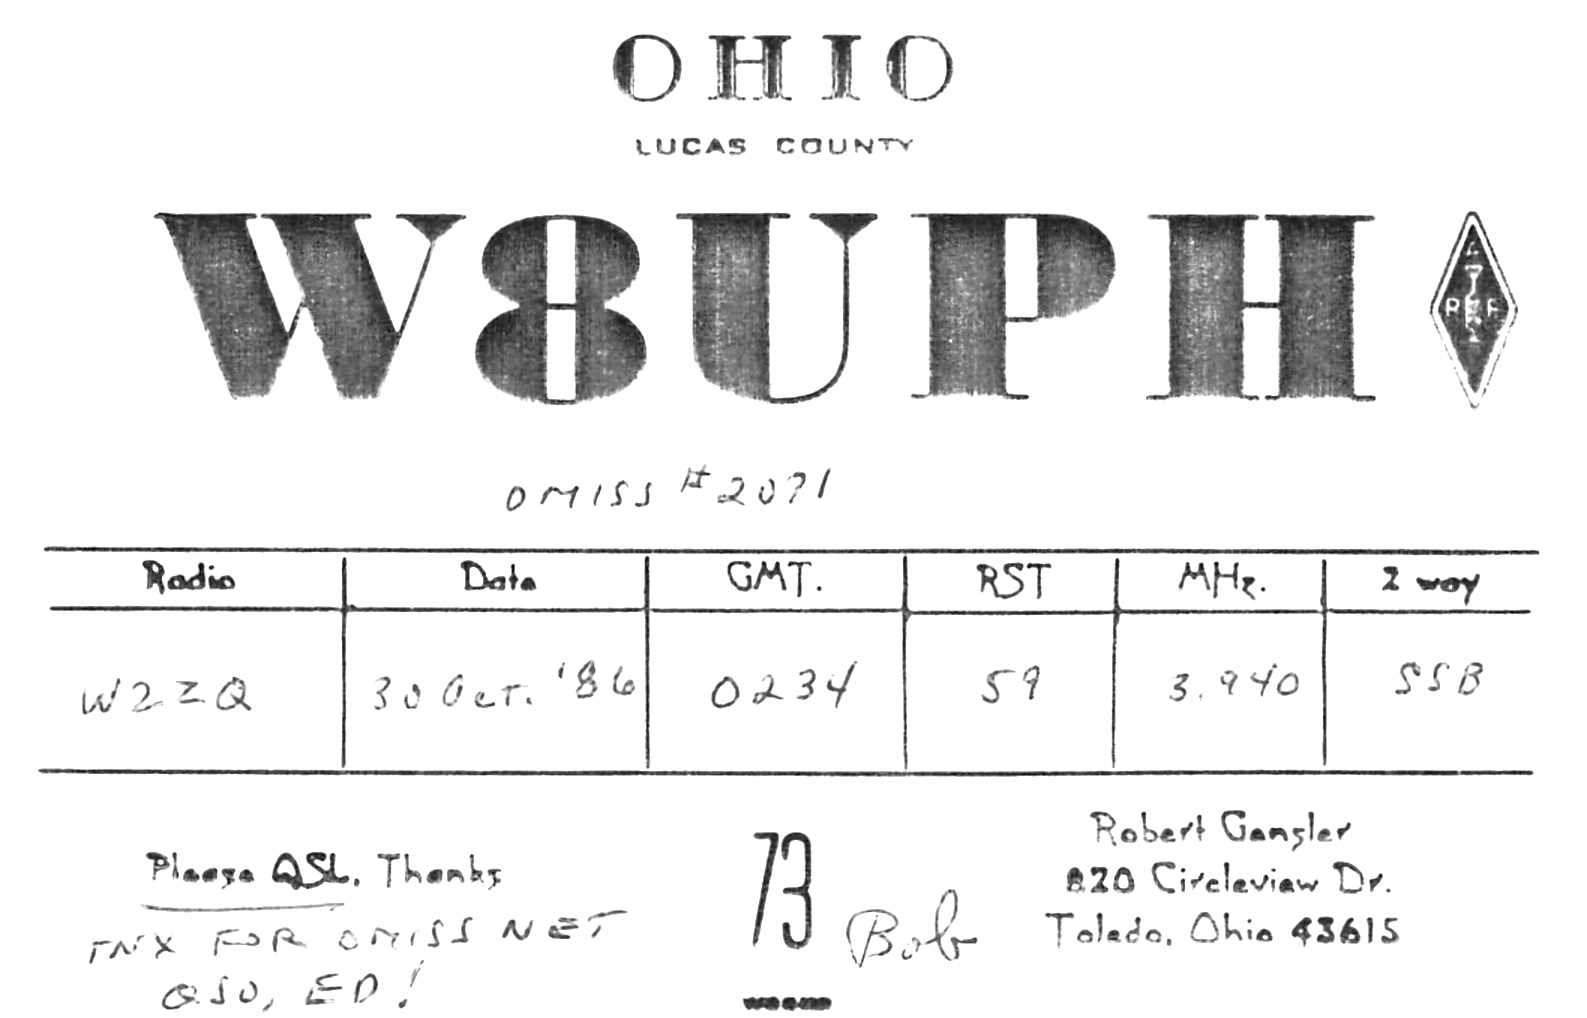 OHIO
LUCAS COUNTY
W8UPH
OMISS #2071
Radio Date GMT. RST MHz. 2 way
W2ZQ 30 Oct. '86 0234 59 3.940 SSB
Please QSL. Thanks
TNX FOR OMISS NET
QSO, ED!
73
Bob
Robert Gansler
820 Circleview Dr.
Toledo, Ohio 43615